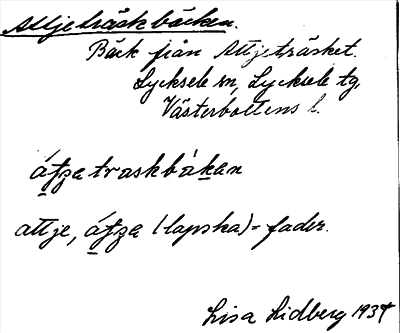 Attjeträskbäcken.
Bäck från Attjeträsket.
Lycksele sn, Lycksele tg,
Västerbottens l.
áʈʂa traskbákan
attje, áʈʂa (lapska) = fader.
Lisa Lidberg 1934